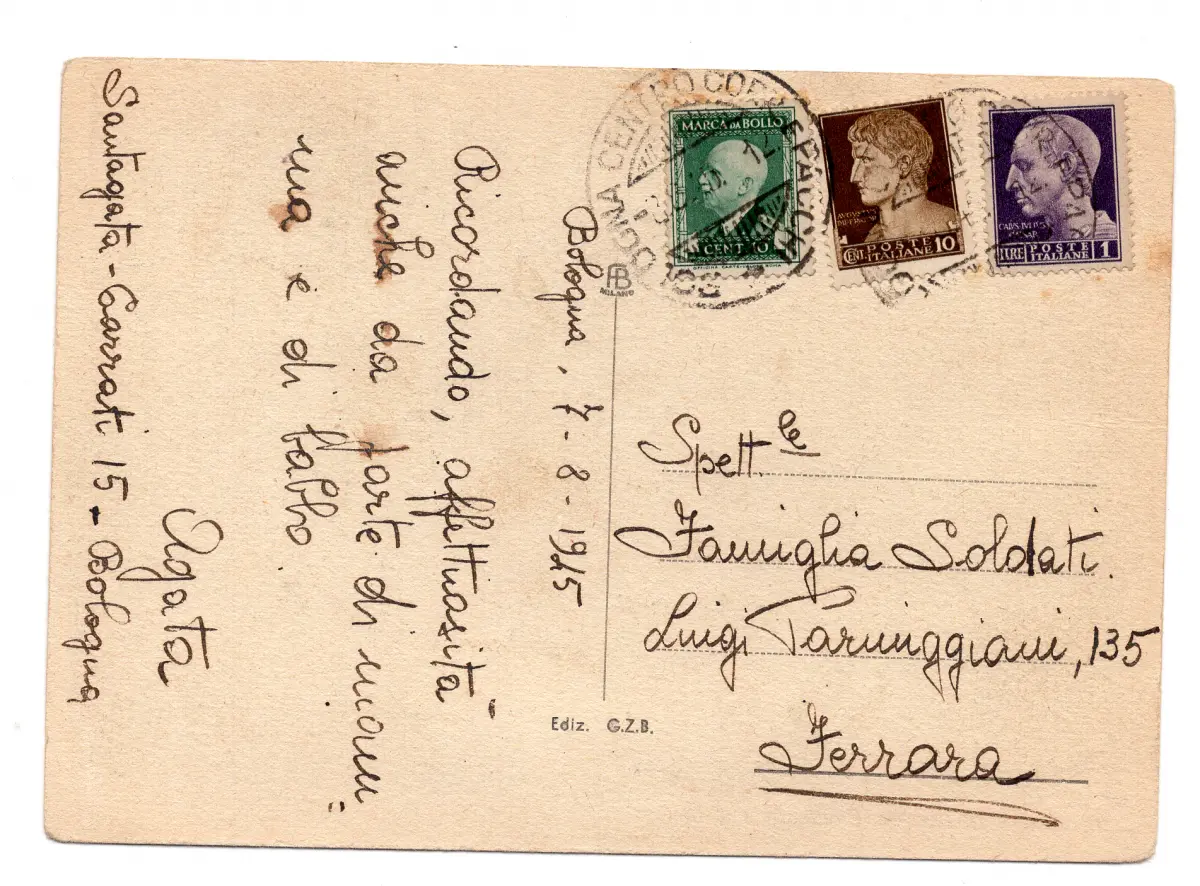 Santagata - Carrati 15 - Bologna
Bologna, 7 - 8 - 1945
Ricordando, affettuosità
anche da parte di mam=
ma e di babbo.
Agata
MARCA DA BOLLO
CENT. 10
POSTE
CENT. ITALIANE 10
POSTE
LIRE ITALIANE 1
BOLOGNA CENTRO CORR. E PACCHI
MILANO
Spett.le
Famiglia Soldati.
Luigi Tarmiggiani, 135
Ferrara
Ediz. G.Z.B.